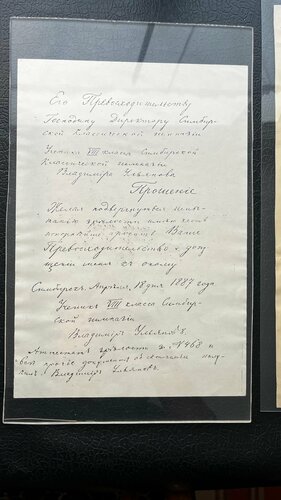 Его Превосходительству
Господину Директору Симбир-
ской Классической гимназии
Ученика VIII класса Симбирской
Классической гимназии
Владимира Ульянова
Прошение
Желая подвергнуться испы-
танию зрелости имею честь
покорнейше просить Ваше
Превосходительство о допу-
щении меня к оному
Симбирск. Апреля, 18 дня 1887 года
Ученик VIII класса Симбир-
ской гимназии
Владимир Ульянов.
Аттестат зрелости за №468 и
все прочие документы об получил
Владимир Ульянов.